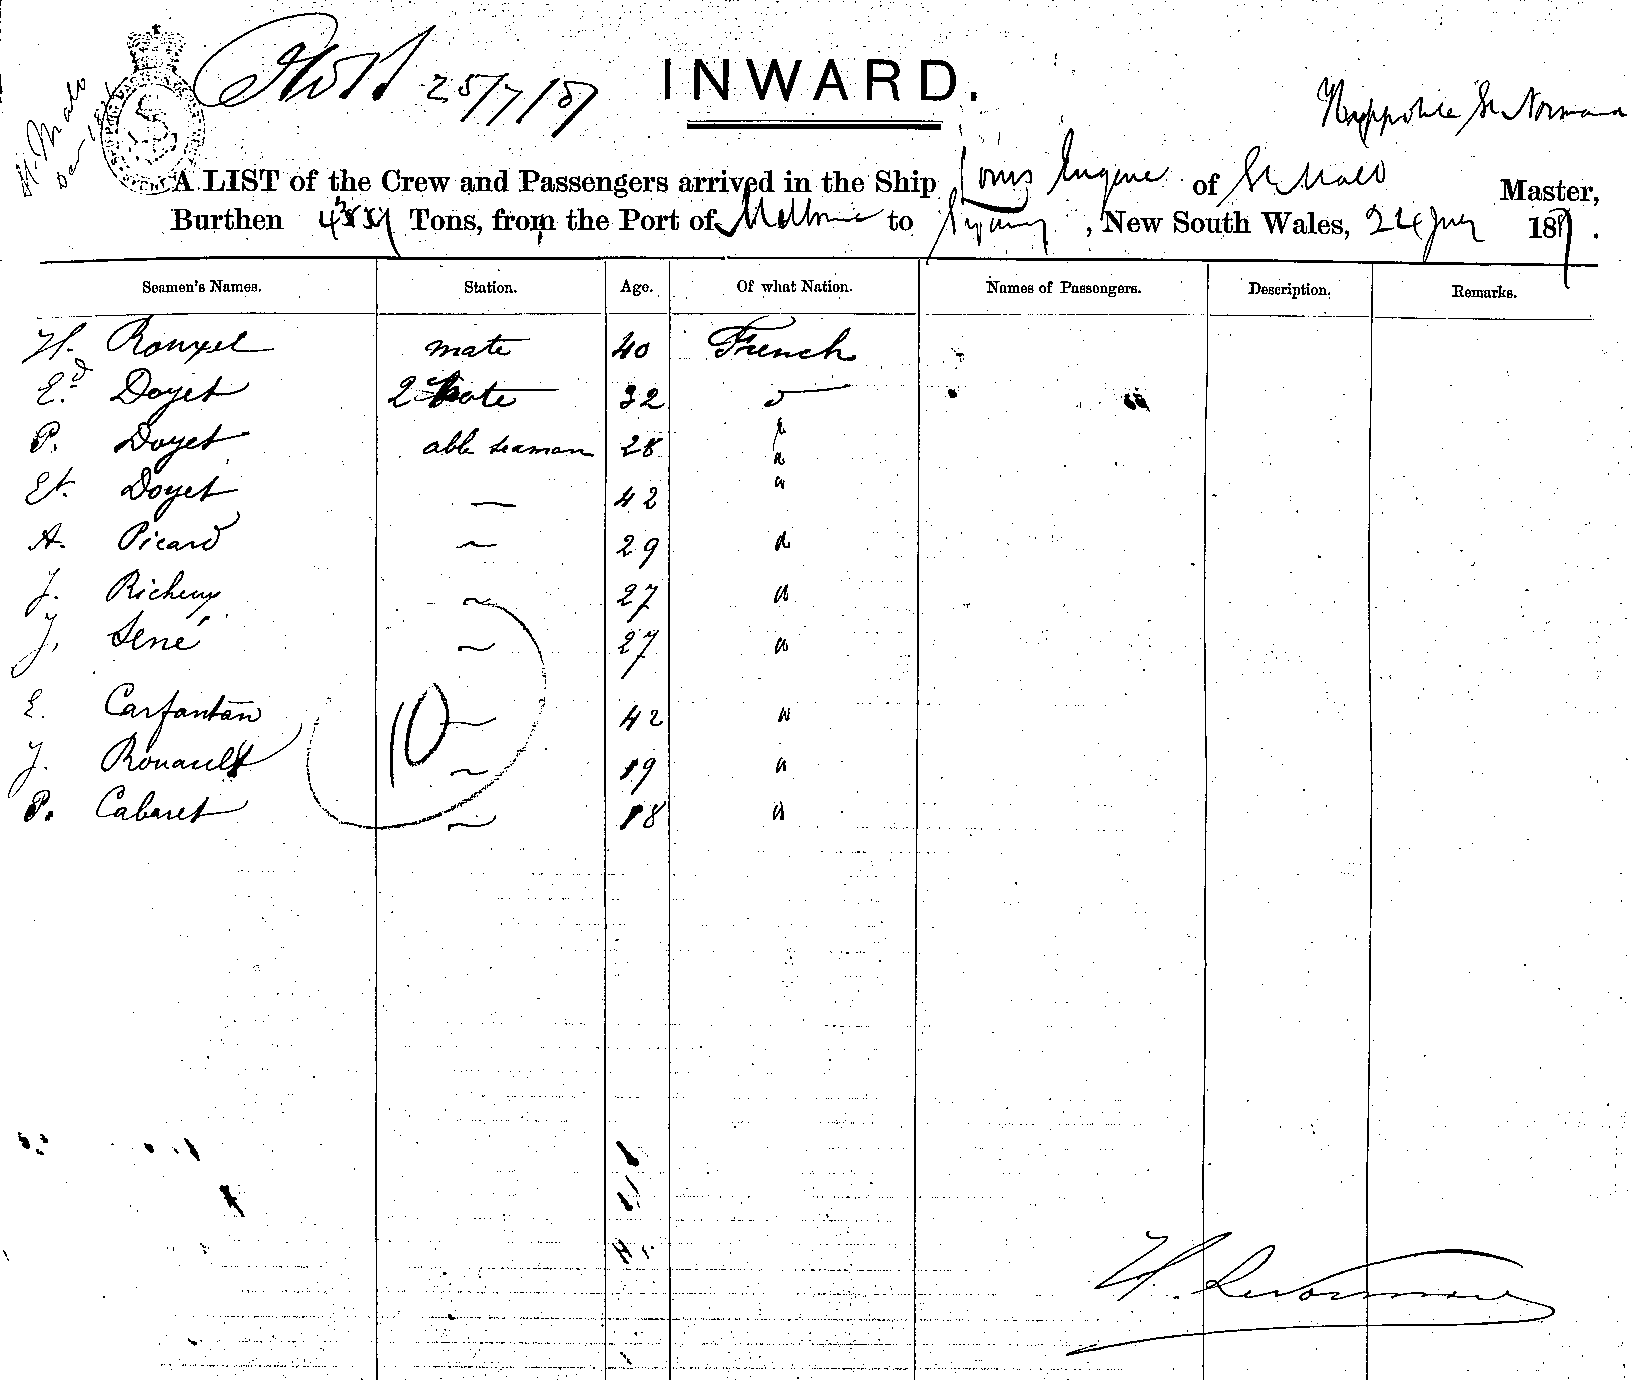 25/7/87
INWARD.
St. Malo
A LIST of the Crew and Passengers arrived in the Ship Louis Eugene of St Malo Master,
Burthen Tons, from the Port of Melbourne to Sydney, New South Wales, 24 July 187 .
Seamen's Names. Station. Age. Of what Nation. Names of Passengers. Description. Remarks.
H. Rouxel mate 40 French
Ed Doyet 2 mate 32
P. Doyet able seaman 28 "
Et. Doyet — 42 "
A. Picard ~ 29 "
J. Richeux ~ 27 "
J. Sené ~ 27 "
E. Carfantan ~ 42 "
J. Rouault ~ 19 "
P. Cabaret ~ 18 "
10